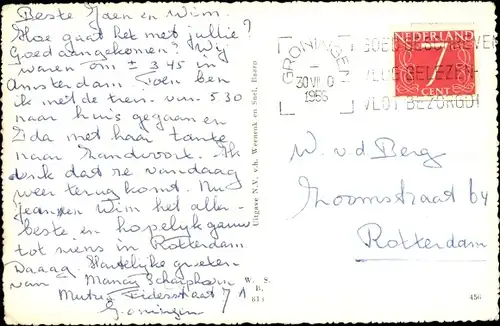 Beste Jaen en Wim.
Hoe gaat het met jullie?
Goed aangekomen? Wij
waren om ± 3.45 in
Amsterdam. Toen ben
ik met de trein van 5.30
naar huis gegaan en
Ida met haar tante
naar Zandvoort. Ik
denk dat ze vandaag
weer terug komt. Nu
Jeanen Wim het aller-
beste en hopelijk gauw
tot ziens in Rotterdam
Daaag Hartelijke groeten
van Mancy
71
Groningen
Uitgave N.V. v.h. Weenenk en Snel, Baarn
W. S.
B.
813
GRONINGEN
30 VII 0
1956
GOED GESCHREVEN
VLUG GELEZEN-
VLOT BEZORGD!
NEDERLAND
7
CENT
W. v.d Berg
Zhoomstraat 64
Rotterdam
456